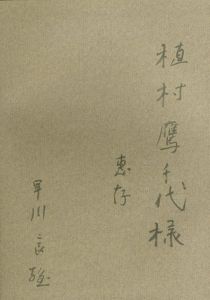 植村鷹千代様
恵存
早川良雄